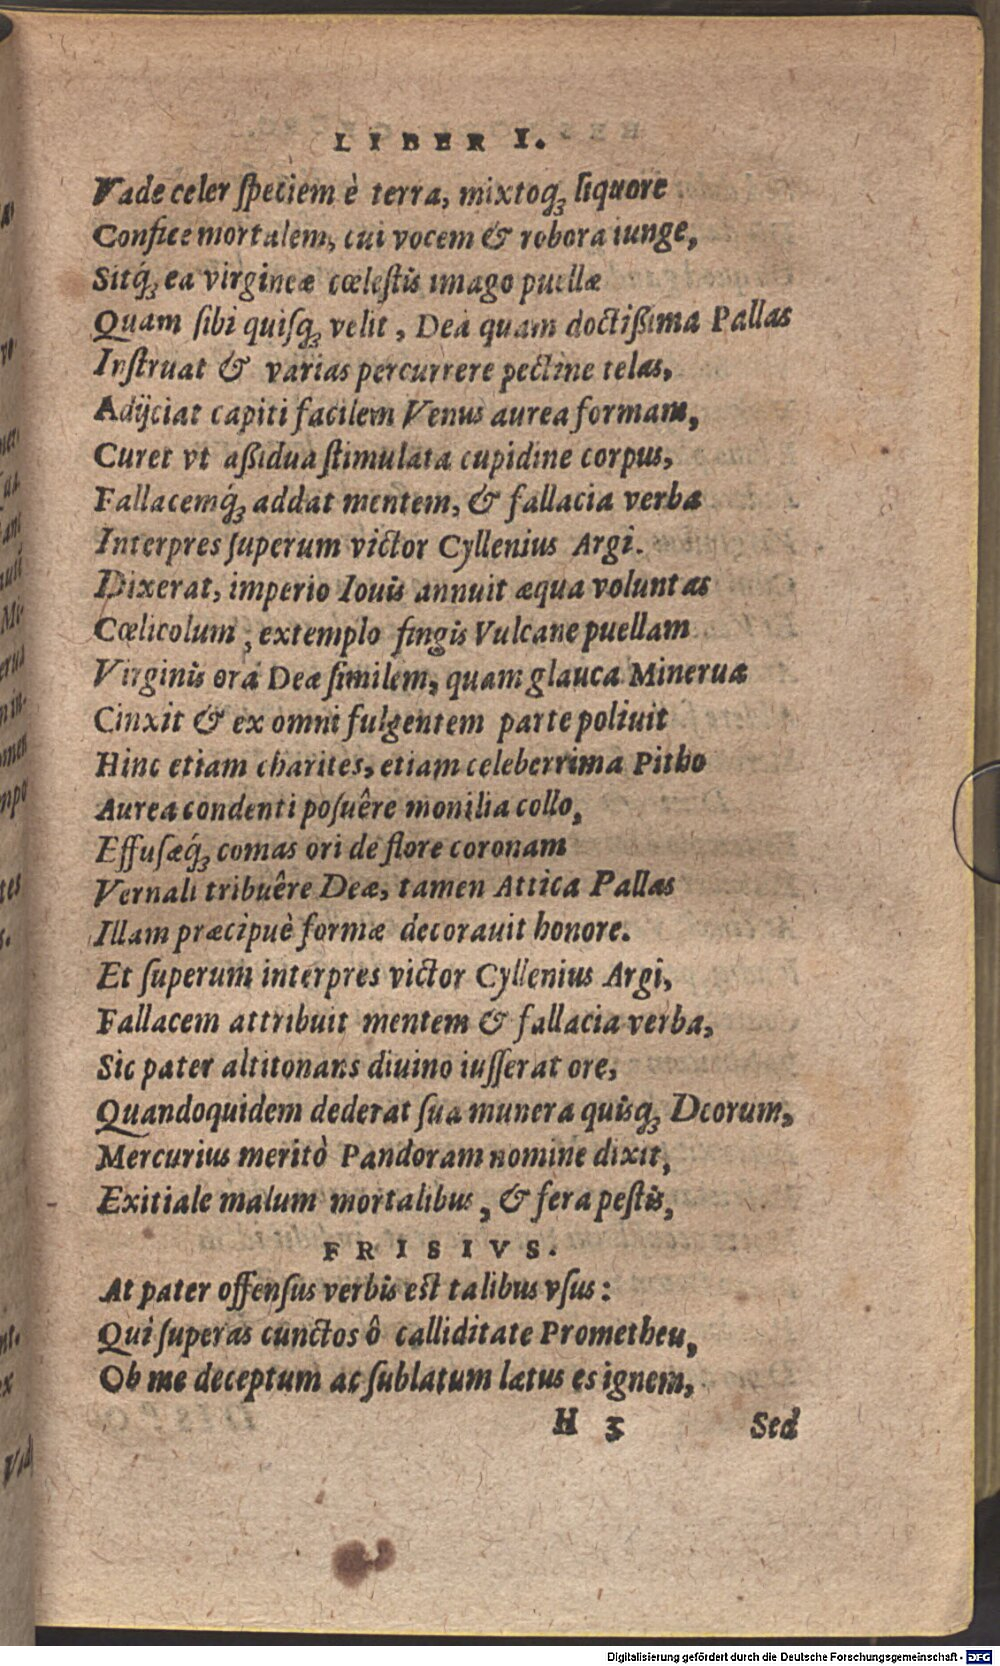 LIBER I.
Vade celer speciem è terra, mixtoq́ꝫ liquore
Confice mortalem, cui vocem & robora iunge,
Sitq́ꝫ ea virgineæ cœlestis imago puellæ
Quam sibi quisqꝫ velit, Dea quam doctißima Pallas
Instruat & varias percurrere pectine telas,
Adijciat capiti facilem Venus aurea formam,
Curet vt aßidua stimulata cupidine corpus,
Fallacemq́ꝫ addat mentem, & fallacia verba
Interpres superum victor Cyllenius Argi.
Dixerat, imperio Iouis annuit æqua voluntas
Cœlicolum, extemplo fingis Vulcane puellam
Virginis ora Deæ similem, quam glauca Mineruæ
Cinxit & ex omni fulgentem parte poliuit
Hinc etiam charites, etiam celeberrima Pitho
Aurea condenti posuêre monilia collo,
Effusæq́ꝫ comas ori de flore coronam
Vernali tribuêre Deæ, tamen Attica Pallas
Illam præcipuè formæ decorauit honore.
Et superum interpres victor Cyllenius Argi,
Fallacem attribuit mentem & fallacia verba,
Sic pater altitonans diuino iusserat ore,
Quandoquidem dederat sua munera quisqꝫ Deorum,
Mercurius meritò Pandoram nomine dixit,
Exitiale malum mortalibus, & fera pestis,
FRISIVS.
At pater offensus verbis est talibus vsus:
Qui superas cunctos ô calliditate Prometheu,
Ob me deceptum ac sublatum lætus es ignem,
H 3 Sed
Digitalisierung gefördert durch die Deutsche Forschungsgemeinschaft - DFG